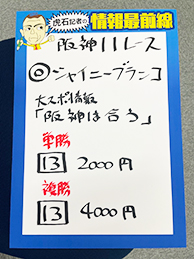 虎石記者の
情報最前線
阪神11レース
◎シャイニーブランコ
大スポ情報
「阪神は合う」
単勝
13 2000円
複勝
13 4000円